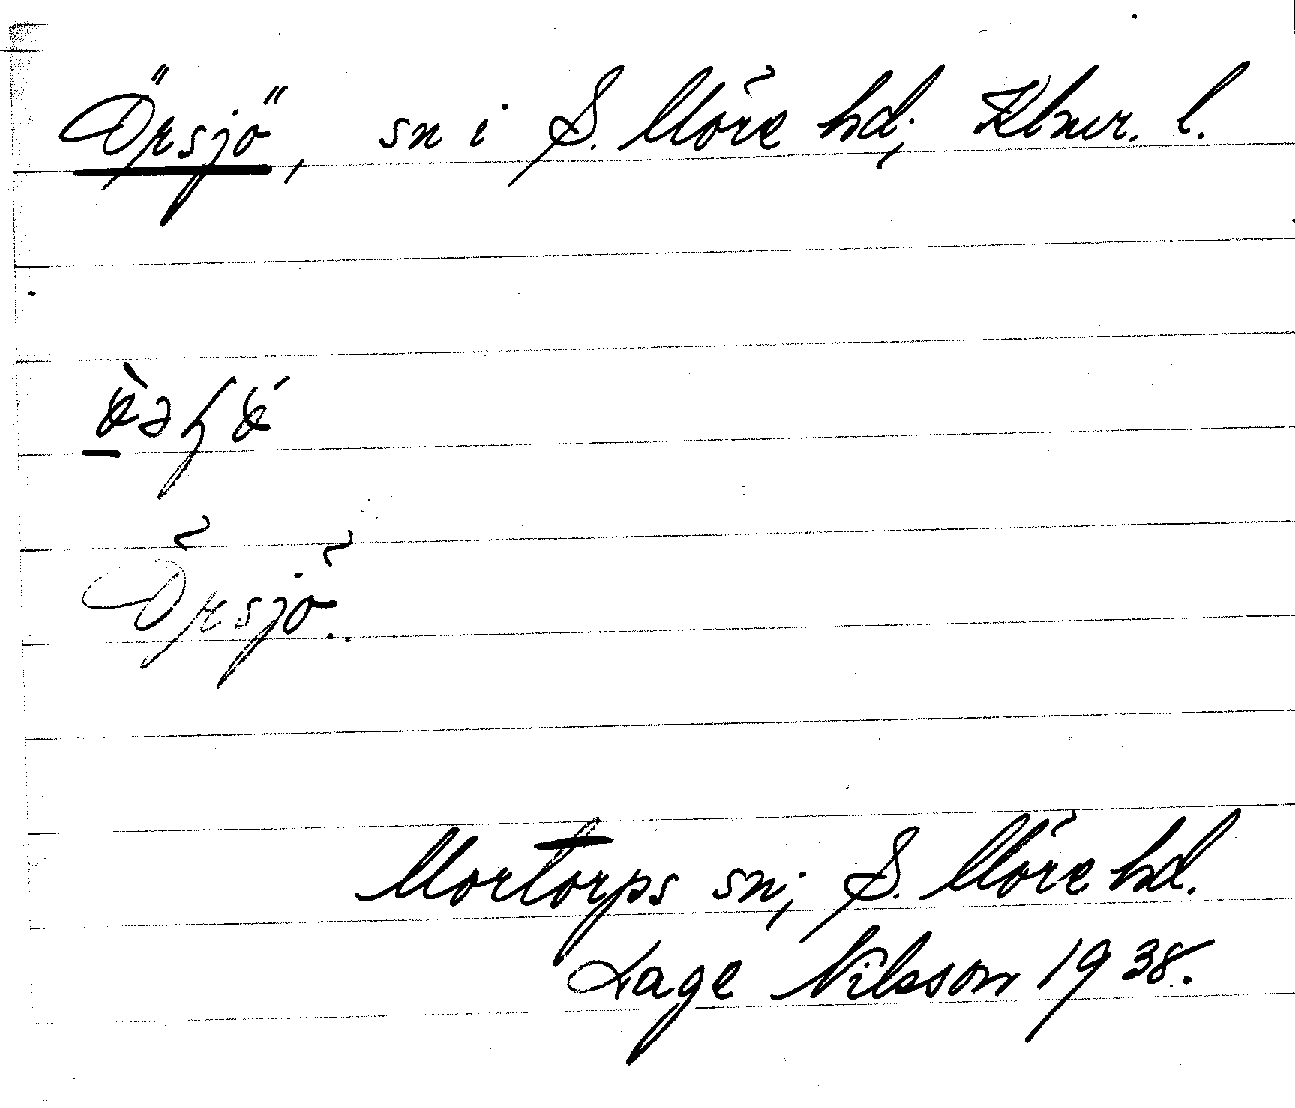 Örsjö, sn i S. Möre hd, Klmr. l.
Örsjö..
Mortorps sn, S. Möre hd.
Lage Nilsson 1938.